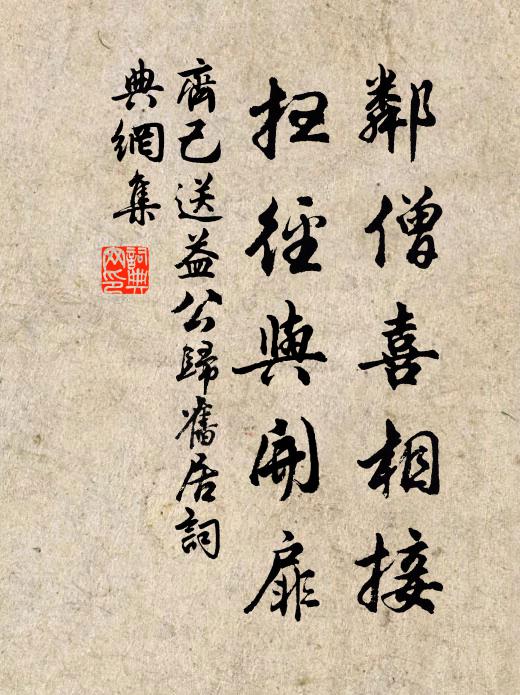 鄰僧喜相接
扫徑與開扉
齊己送益公歸舊居詞
典網集
詞典
文印